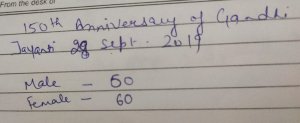 From the desk of
150th Anniversary of Gandhi
Jayanti 28 Sept. 2019
Male - 50
Female - 60